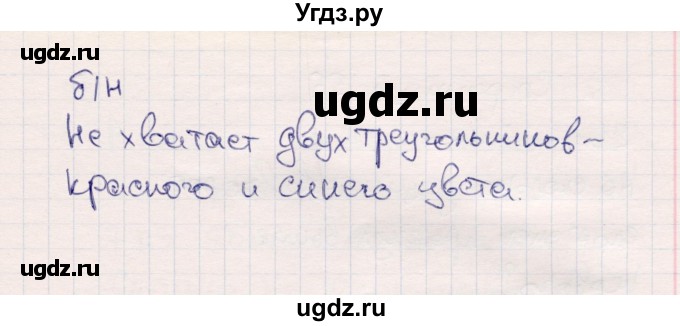 Угдз.ру
ugdz.ru
ugdz.ru
б/н
ugdz.ru
Не хватает двух треугольников -
красного и синего цвета.
ugdz.ru
ugdz.ru
ugdz.ru